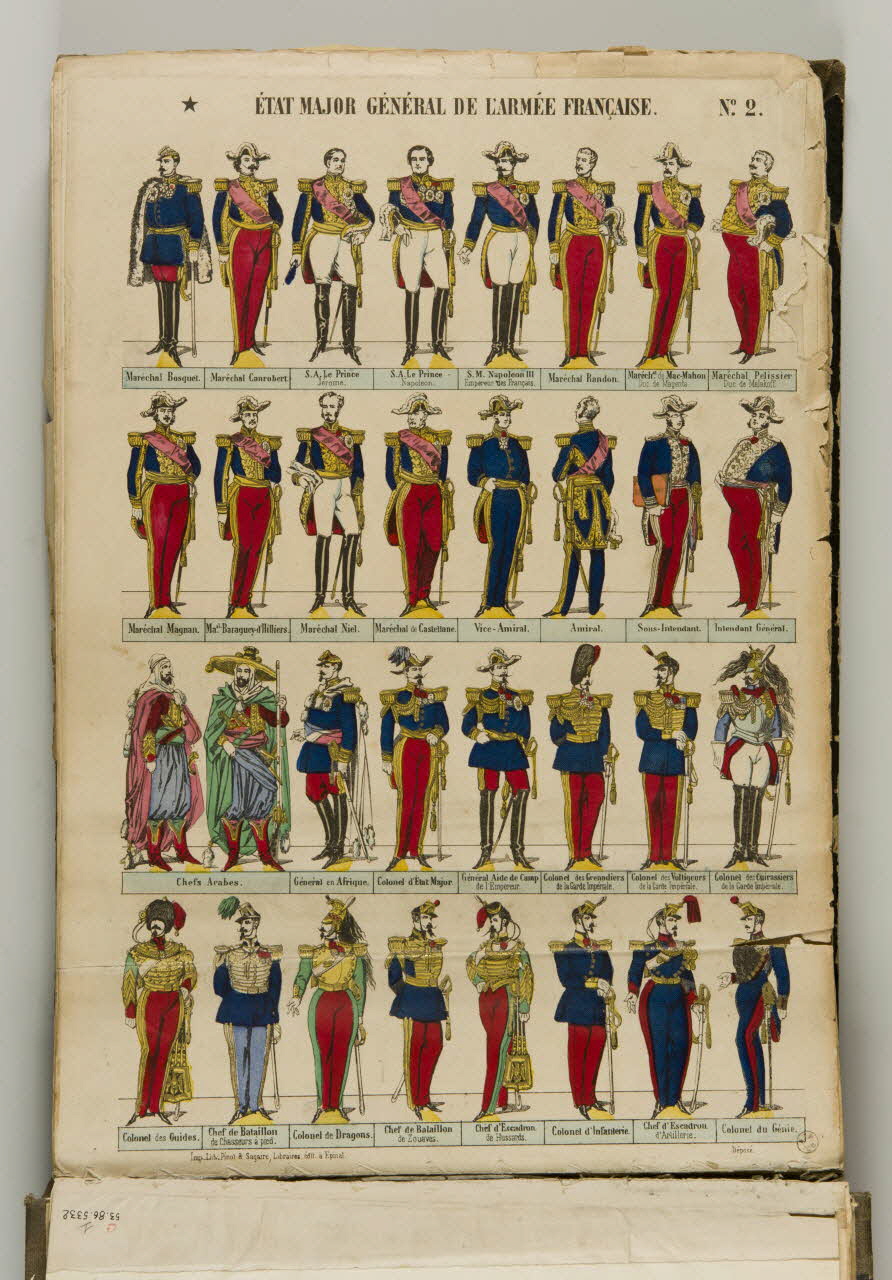 ★ ÉTAT MAJOR GÉNÉRAL DE L'ARMÉE FRANÇAISE. Nº 2.
Maréchal Bosquet.
Maréchal Canrobert.
S.A. Le Prince
Jerome.
S.A. Le Prince
Napoleon.
S.M. Napoleon III
Empereur des Français.
Maréchal Randon.
Maréch.al de Mac-Mahon
Duc de Magenta.
Maréchal Pelissier
Duc de Malakoff.
Maréchal Magnan.
Mal. Baraguey-d'Hilliers.
Maréchal Niel.
Maréchal de Castellane.
Vice-Amiral.
Amiral.
Sous-Intendant.
Intendant Général.
Chefs Arabes.
Général en Afrique.
Colonel d'Etat Major
Général Aide de Camp
de l'Empereur.
Colonel des Grenadiers
de la Garde Impériale.
Colonel des Voltigeurs
de la Garde Impériale.
Colonel des Cuirassiers
de la Garde Impériale.
Colonel des Guides.
Chef de Bataillon
de Chasseurs à pied.
Colonel de Dragons.
Chef de Bataillon
de Zouaves.
Chef d'Escadron
de Hussards.
Colonel d'Infanterie.
Chef d'Escadron
d'Artillerie.
Colonel du Génie.
Imp. Lith. Pinot & Sagaire, Libraires, édit. à Epinal.
Déposé.
53.86.5332